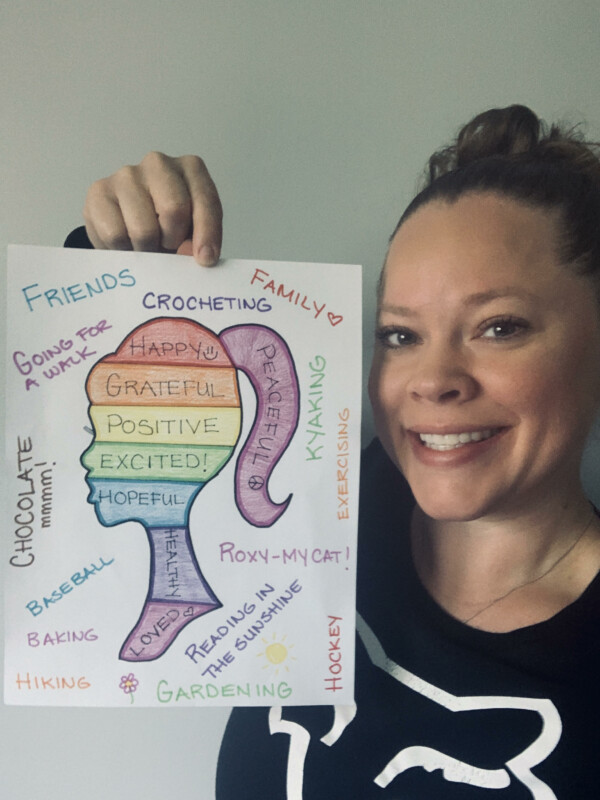 FRIENDS
CROCHETING
FAMILY
GOING FOR
A WALK
HAPPY
PEACEFUL
GRATEFUL
POSITIVE
EXCITED!
HOPEFUL
HEALTHY
LOVED
KYAKING
EXERCISING
CHOCOLATE
mmmm!
ROXY-MY CAT!
BASEBALL
READING IN
THE SUNSHINE
BAKING
HOCKEY
HIKING
GARDENING